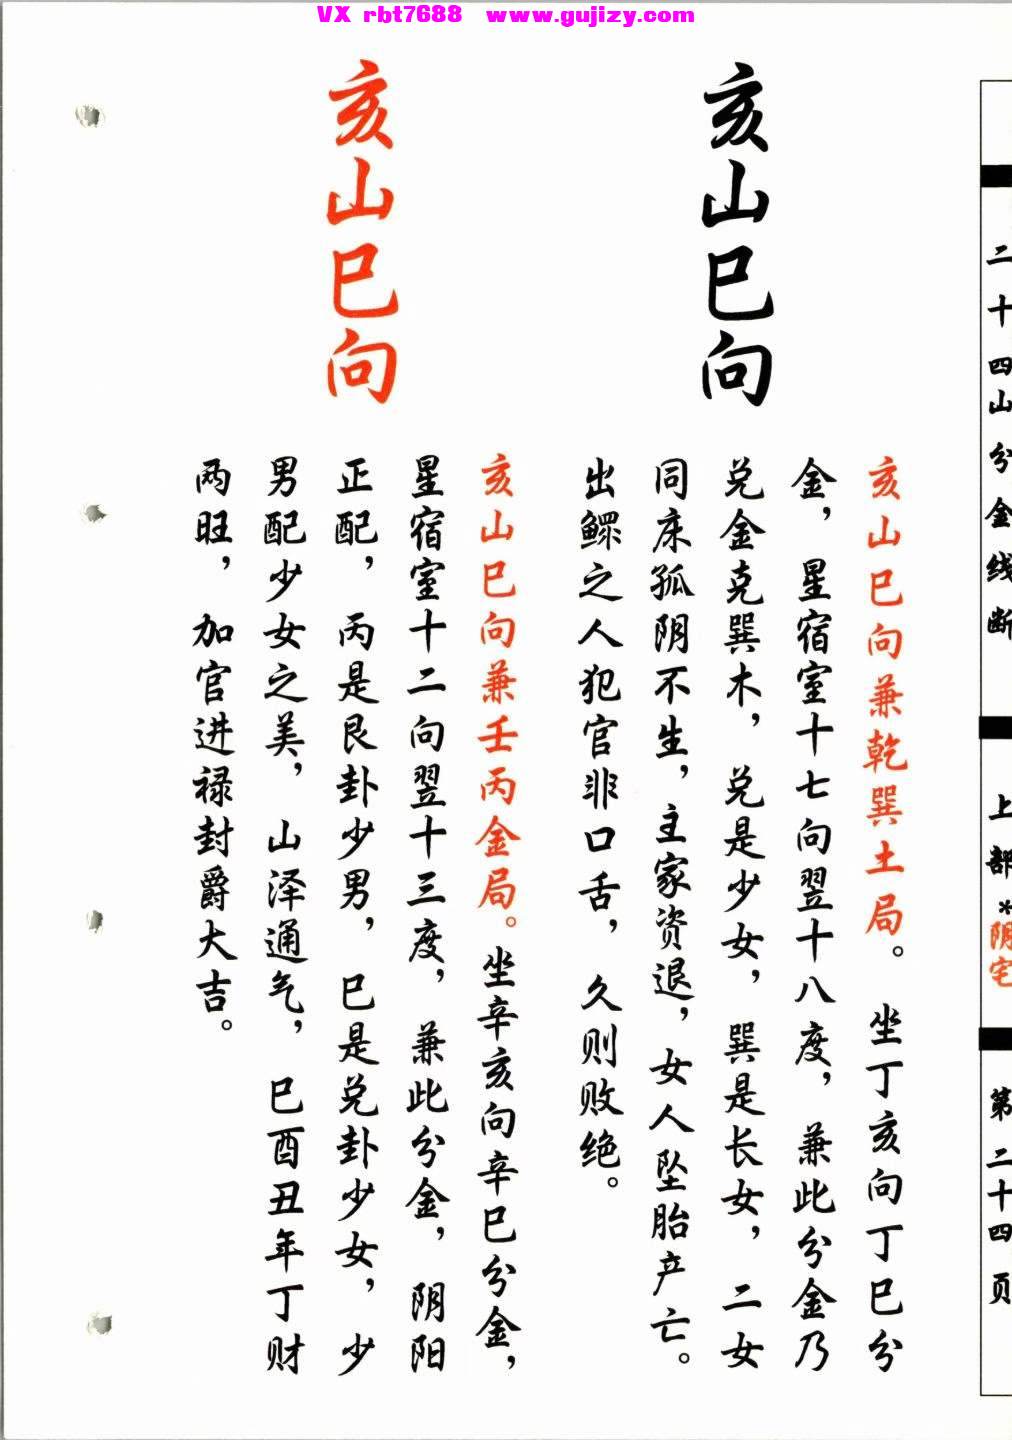 VX rbt7688 www.gujizy.com
二十四山分金线断
上部*阴宅
第二十四页
亥山巳向
亥山巳向兼乾巽土局。坐丁亥向丁巳分
金，星宿室十七向翌十八度，兼此分金乃
兑金克巽木，兑是少女，巽是长女，二女
同床孤阴不生，主家资退，女人坠胎产亡。
出鳏之人犯官非口舌，久则败绝。
亥山巳向
亥山巳向兼壬丙金局。坐辛亥向辛巳分金，
星宿室十二向翌十三度，兼此分金，阴阳
正配，丙是艮卦少男，巳是兑卦少女，少
男配少女之美，山泽通气，巳酉丑年丁财
两旺，加官进禄封爵大吉。